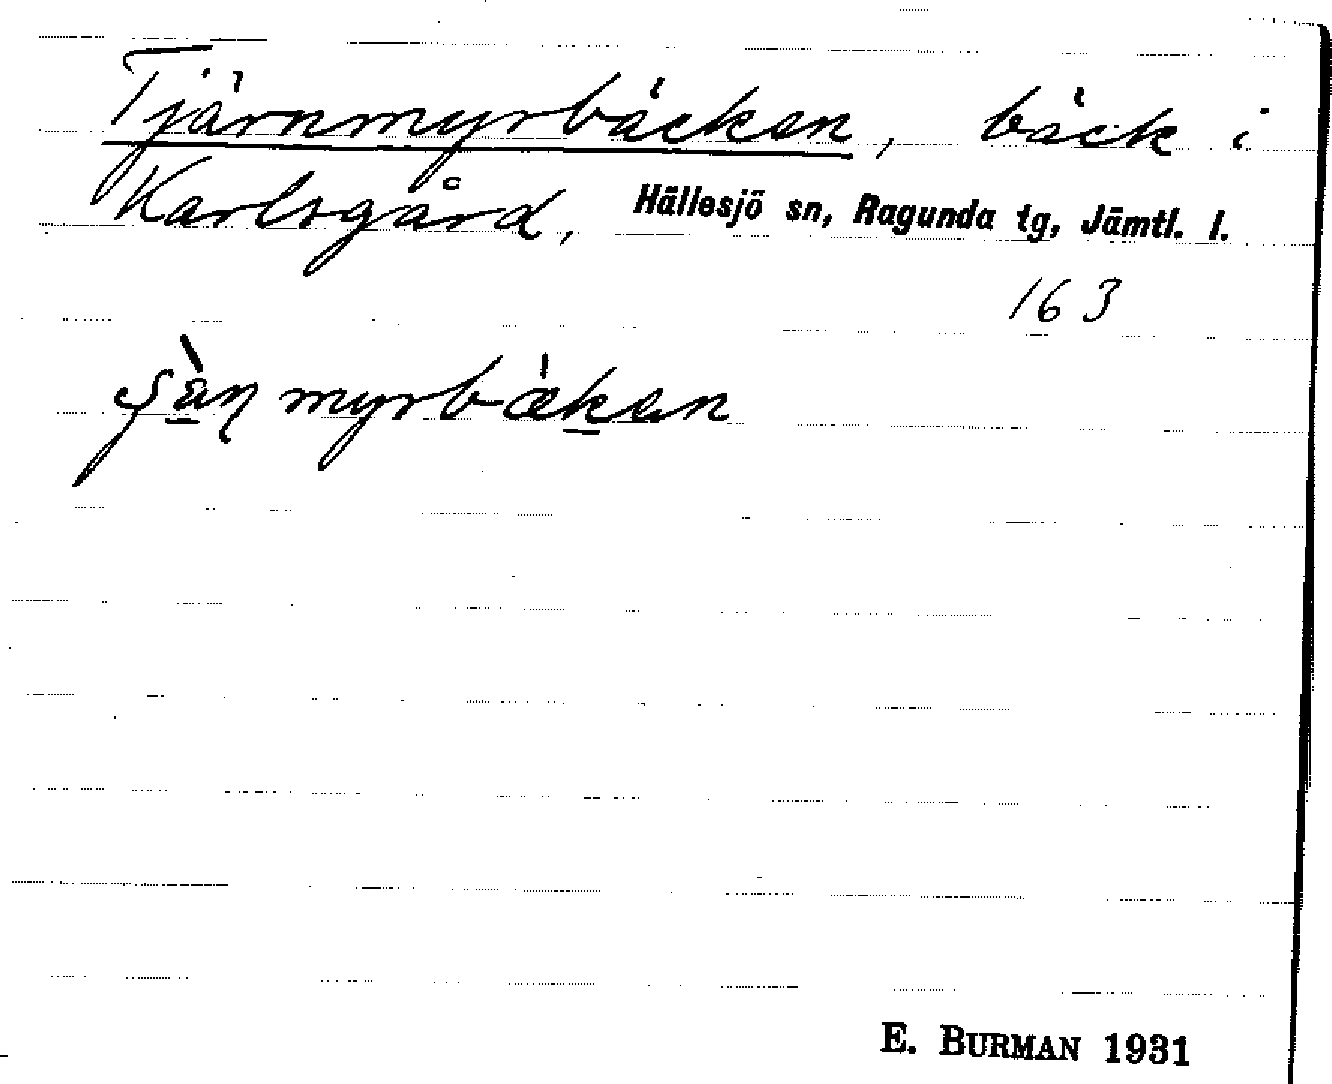 Tjärnmyrbäcken, bäck i
Karlsgård, Hällesjö sn, Ragunda tg, Jämtl. l.
163
myrbækan
E. BURMAN 1931